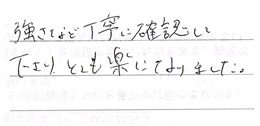 強さなど丁寧に確認して
下さり とても楽になりました。